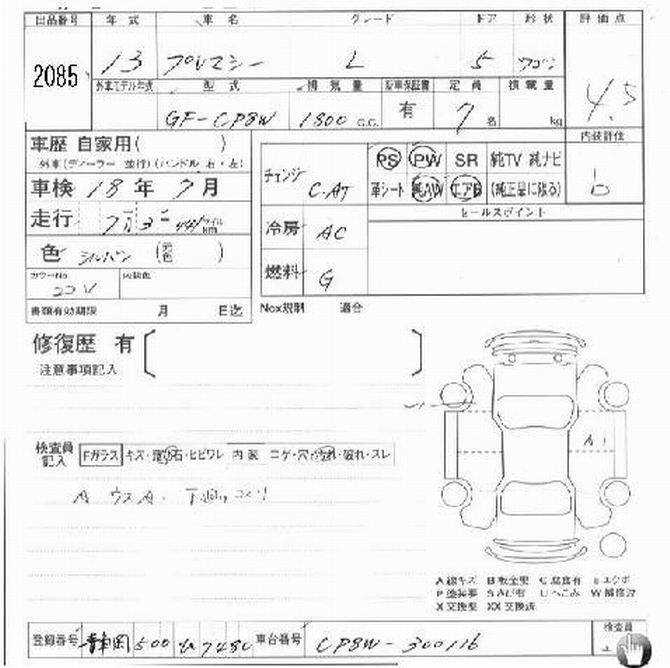 出品番号 年式 車名 グレード ドア 形状 評価点
2085 13 プレマシー L 5 ワゴン 4.5
外車モデル年式 型式 排気量 新車保証書 定員 積載量
GF-CP8W 1800 c.c. 有 7名 kg
内装評価
b
車歴 自家用( )
外車(ディーラー 並行)(ハンドル 右・左)
車検 18年 7月
走行 マイル km
色 (元色 )
カラーNo. 内装色
22V
書類有効期限 月 日迄
チェンジ C-AT PS PW SR 純TV 純ナビ
革シート 純AW エアB (純正品に限る)
冷房 AC セールスポイント
燃料 G
Nox規制 適合
修復歴 有
注意事項記入
検査員記入 Fガラス キズ・飛び石・ヒビワレ 内装 コゲ・穴・汚れ・破れ・スレ
A ウスA. 下廻りコスリ
A1
A 線キズ B 板金要 C 腐食有 E エクボ
P 塗装要 S さび有 U へこみ W 補修波
X 交換要 XX 交換済
登録番号 静岡 500 7480 車台番号 CP8W-300116 検査員